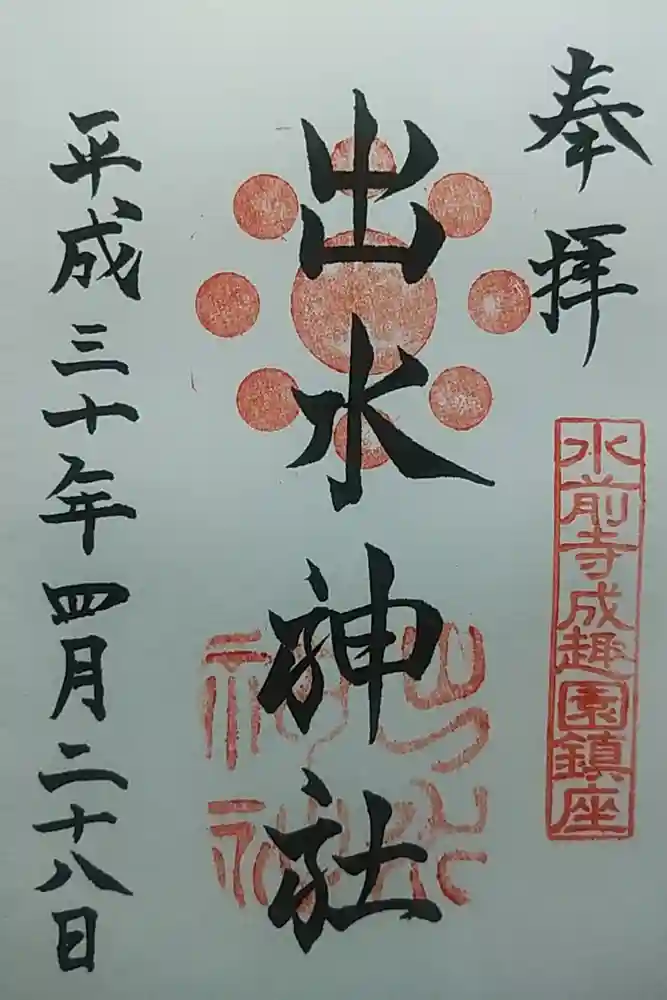 奉拝
水前寺成趣園鎮座
出水神社
出水神社
平成三十年四月二十八日